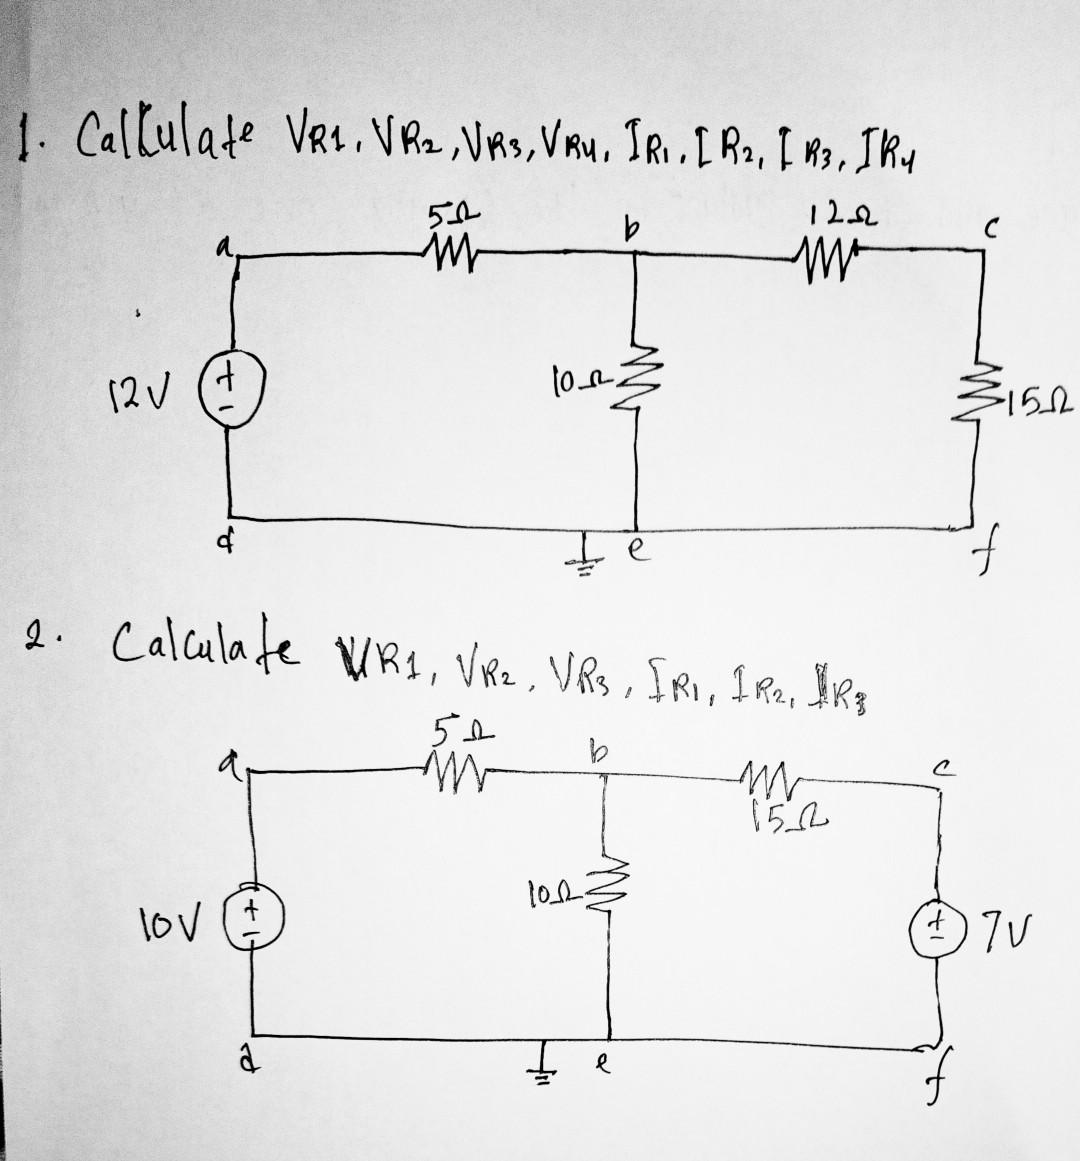 1. Calkulate VR1, VR2, VR3, VR4, IR1, IR2, IR3, IR4
5Ω
12Ω
a
b
c
12V
+
-
10Ω
15Ω
d
e
f
2. Calculate VR1, VR2, VR3, IR1, IR2, IR3
5Ω
a
b
c
15Ω
10V
+
-
10Ω
+
-
7V
d
e
f